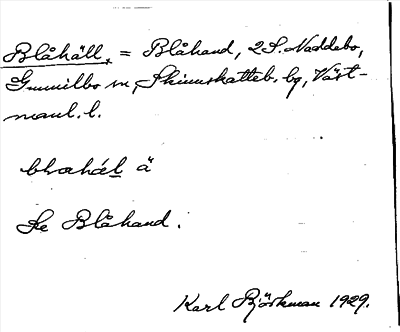 Blåhäll, = Blåhand, 2 S. Naddebo,
Gunnilbo sn, Skinnskatteb. bg, Väst-
manl. l.
blåhäl ä
Se Blåhand.
Karl Björkman 1929.